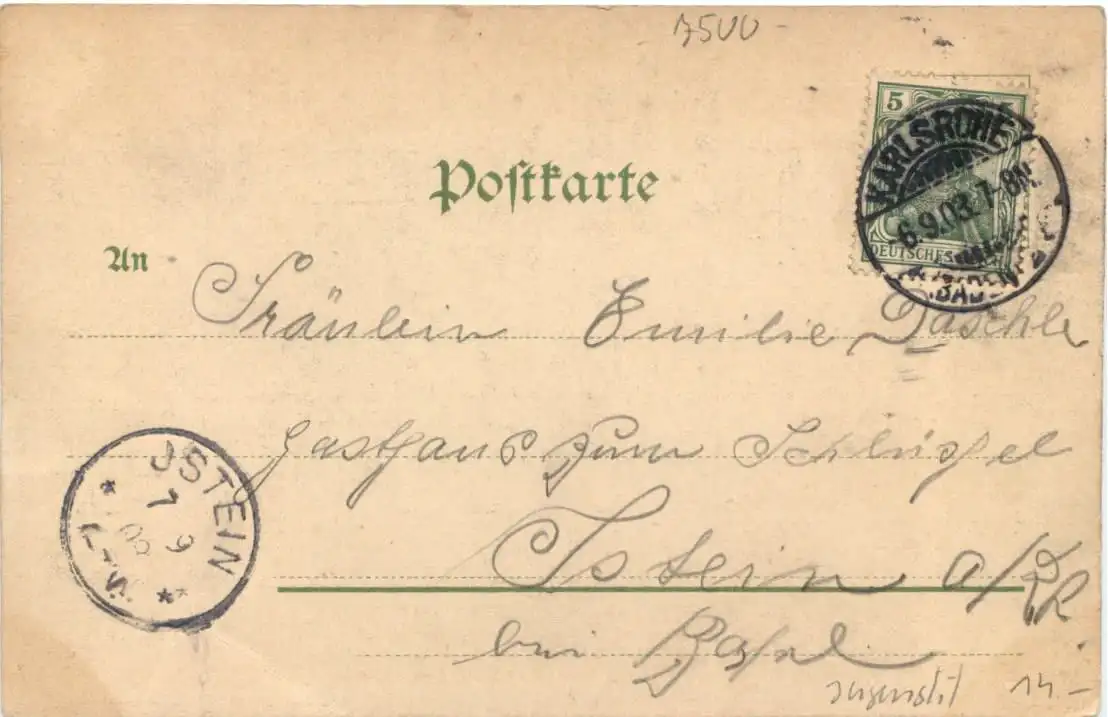 7500 -
5
DEUTSCHES
KARLSRUHE
6.9.03.7-8N.
BADEN
Postkarte
An
Fräulein Emilie Daschle
Gasthaus zum Schlüssel
Istein a/Rh
bei Basel
JSTEIN
7 9
03
Jugendstil 14-